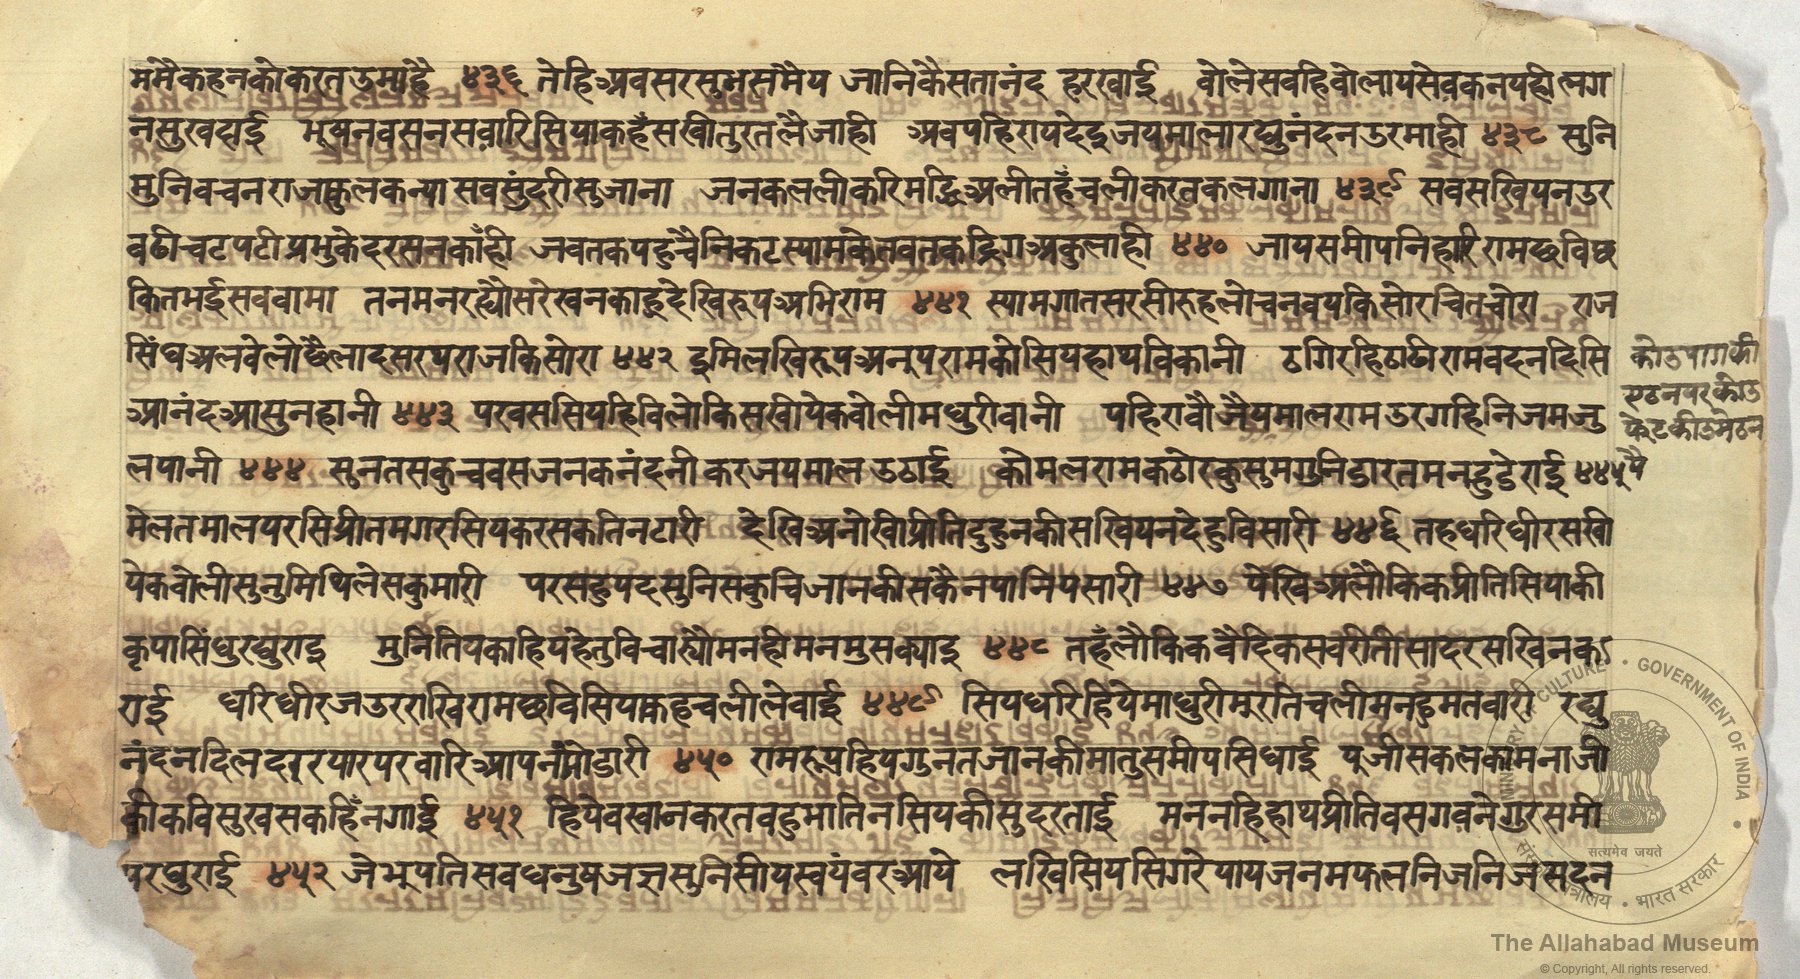 ममैकहनकोकरतउमाहै ४३६ तेहिअवसरसुभसमैय जानिकैसतानंद हरखाई वोलेसवहिवोलायसेवकनपहीलग
नसुखदाई भूषनवसनसवारिसियाकहँसखीतुरतलैजाही अवपहिरायदेहुजयमालारघुनंदनउरमाही ४३८ सुनि
मुनिवचनराजाकुलकन्यासवसुंदरीसुजाना जनकललीकरिमद्धिअलीतहँचलीकरतकलगाना ४३९ सवसखियनउर
वढीचटपटीप्रभुकेदरसनकाँही जवतकपहुचैनिकटस्यामकेतवतकद्रिगअकुलाही ४४० जायसमीपनिहारिरामछविछ
कितभईसववामा तनमनरह्यौसरेखनकाहुदेखिरूपअभिराम ४४१ स्यामगातसरसीरुहलोचनवयकिसोरचितचोरा राज
सिंघअलवेलोछैलादसरथराजकिसोरा ४४२ इमिलखिरूपअनुपरामकोसियहाथविकानी ठगिरहिठाठीरामवदनदिसि
आनंदआसुनहानी ४४३ परवससियहिविलोकिसखीयेकवोलीमधुरीवानी पहिरावौजैयमालरामउरगहिनिजमजु
लपानी ४४४ सुनतसकुचवसजनकनंदनीकरजयमालउठाई कोमलरामकठोरकुसुमगुनिडारतमनहुडेराई ४४५
मेलतमालपरसिप्रीतमगरसियकरसकतिनटारी देखिअनोखीप्रीतिदुहुनकीसखियनदेहुविसारी ४४६ तहधरिधीरसखी
येकवोलीसुनुमिथिलेसकुमारी परसहुपदसुनिसकुचिजानकीसकैनपानिपसारी ४४७ पेखिअलौकिकप्रीतिसियाकी
कृपासिंधुरघुराइ मुनितियकाहियहेतुविचाख्यौमनहीमनमुसक्याइ ४४८ तहँलौकिकवैदिकसवरीतीसादरसखिनक
राई धरिधीरजउरराखिरामछविसियकहचलीलेवाई ४४९ सियधरिहियेमाधुरीमुरतिचलीमनहुमतवारी रघु
नंदनदिलदारयारपरवारिआपनपोडारी ४५० रामरूपहियगुनतजानकीमातुसमीपसिधाई पूजीसकलकामनाजी
कीकविसुखसकहिँनगाई ४५१ हियेवखानकरतवहुभातिनसियकीसुदरताई मननहिहाथप्रीतिवसगवनेगुरसमी
परघुराई ४५२ जेभुपतिसवधनुषजज्ञसुनिसीयस्वयंवरआये लखिसियसिगरेपायजनमफलनिजनिजसदन
कोउपागकी
एठनपरकोउ
फेटकीउमेठन
पै
CULTURE • GOVERNMENT OF INDIA
सत्यमेव जयते
भारत सरकार
The Allahabad Museum
© Copyright, All rights reserved.